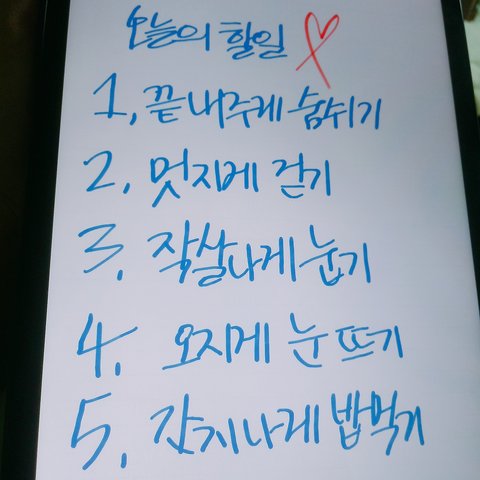 오늘의 할일
1, 끝내주게 숨쉬기
2, 멋지게 걷기
3, 작살나게 눕기
4, 오지게 눈 뜨기
5, 간지나게 밥먹기